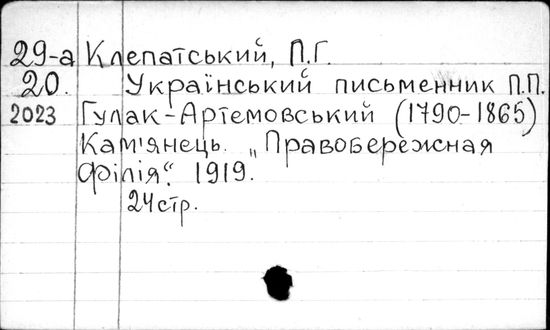 29-а Клепатський, П.Г.
20. Український письменник П.П.
2023 Гулак-Артемовський (1790-1865)
Кам'янець. „Правобережная
філія". 1919.
24 стр.